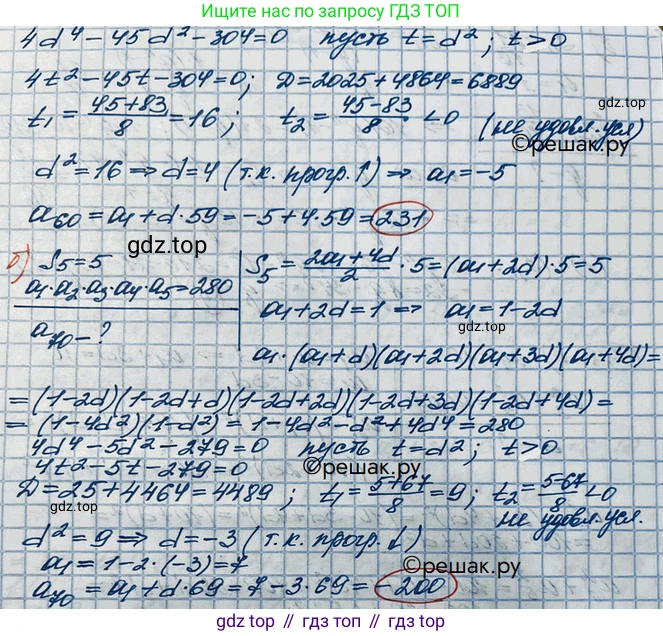 Ищите ответы по запросу ГДЗ ТОП
4d⁴-45d²-304=0 пусть t=d²; t>0
4t²-45t-304=0; D=2025+4864=6889
t₁=(45+83)/8=16; t₂=(45-83)/8<0 (не удовл. усл)
gdz.top
©решак.ру
d²=16⇒d=4 (т.к. прогр.↑)⇒a₁=-5
a₆₀=a₁+d·59=-5+4·59=231
gdz.top
б) S₅=5
a₁·a₂·a₃·a₄·a₅=280
a₇₀-?
S₅=(2a₁+4d)/2·5=(a₁+2d)·5=5
a₁+2d=1⇒ a₁=1-2d
a₁·(a₁+d)(a₁+2d)(a₁+3d)(a₁+4d)=
=(1-2d)(1-2d+d)(1-2d+2d)(1-2d+3d)(1-2d+4d)=
=(1-4d²)(1-d²)=1-4d²-d²+4d⁴=280
4d⁴-5d²-279=0 пусть t=d²; t>0
4t²-5t-279=0
©решак.ру
D=25+4464=4489; t₁=(5+67)/8=9; t₂=(5-67)/8<0
не удовл. усл.
gdz.top
d²=9⇒d=-3 (т.к. прогр.↓)
a₁=1-2·(-3)=7
©решак.ру
a₇₀=a₁+d·69=7-3·69=-200
gdz.top // гдз.топ // gdz.top // гдз.топ